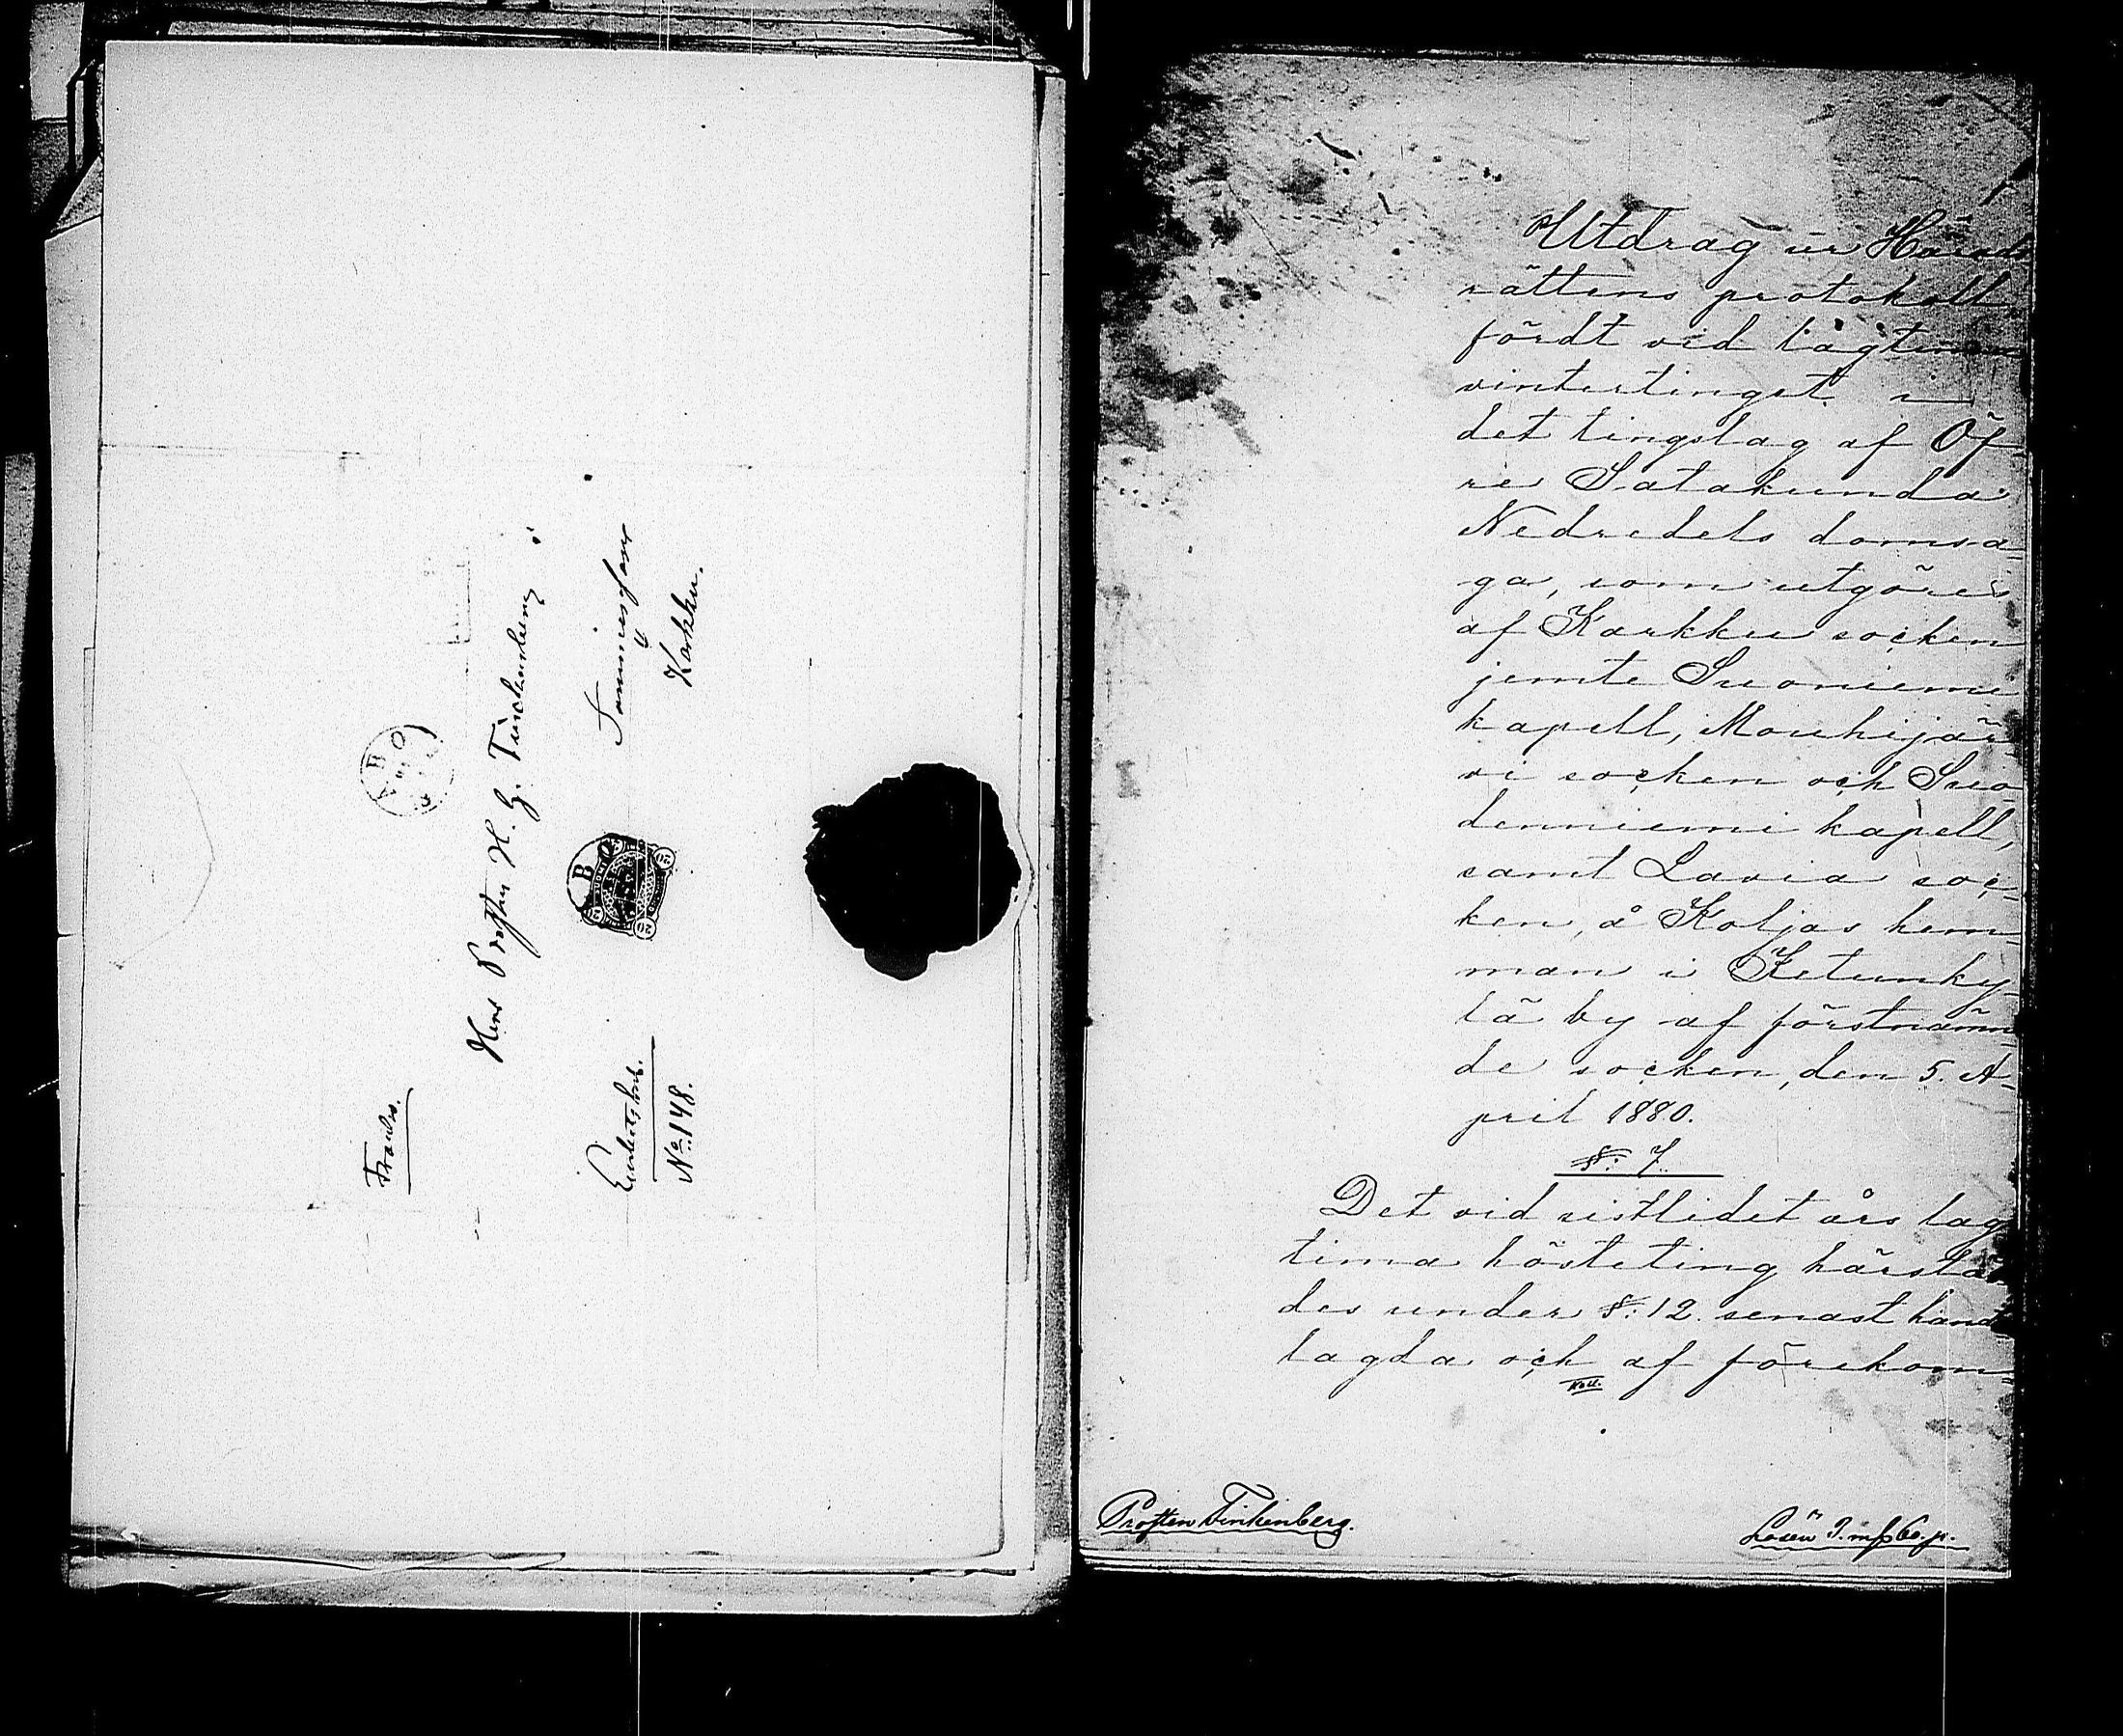 Franko.
ABO
Herr Prosten H. G. Tinckenberg
i
Tammerfors
Karkku.
Embetsbref.
No: 148.
Utdrag ur Härads
rättens protokoll,
fördt vid lagtima
vintertinget i
det tingslag af Öf-
re Satakunda
Nedredels domsa-
ga, som utgöres
af Karkku socken
jemte Suoniemi
kapell, Mouhijär-
vi socken och Suo-
denniemi kapell,
samt Lavia soc-
ken, å Koljas hem-
man i Ketunky-
lä by af förstnämn-
de socken, den 5. A-
pril 1880.
§: 7.
Det vid sistlidet års lag
tima hösteting härstä-
des under §: 12. senast hand
lagda och af förekom-
Koll.
Prosten Tinkenberg.
Lösen 9. mk 60. p.